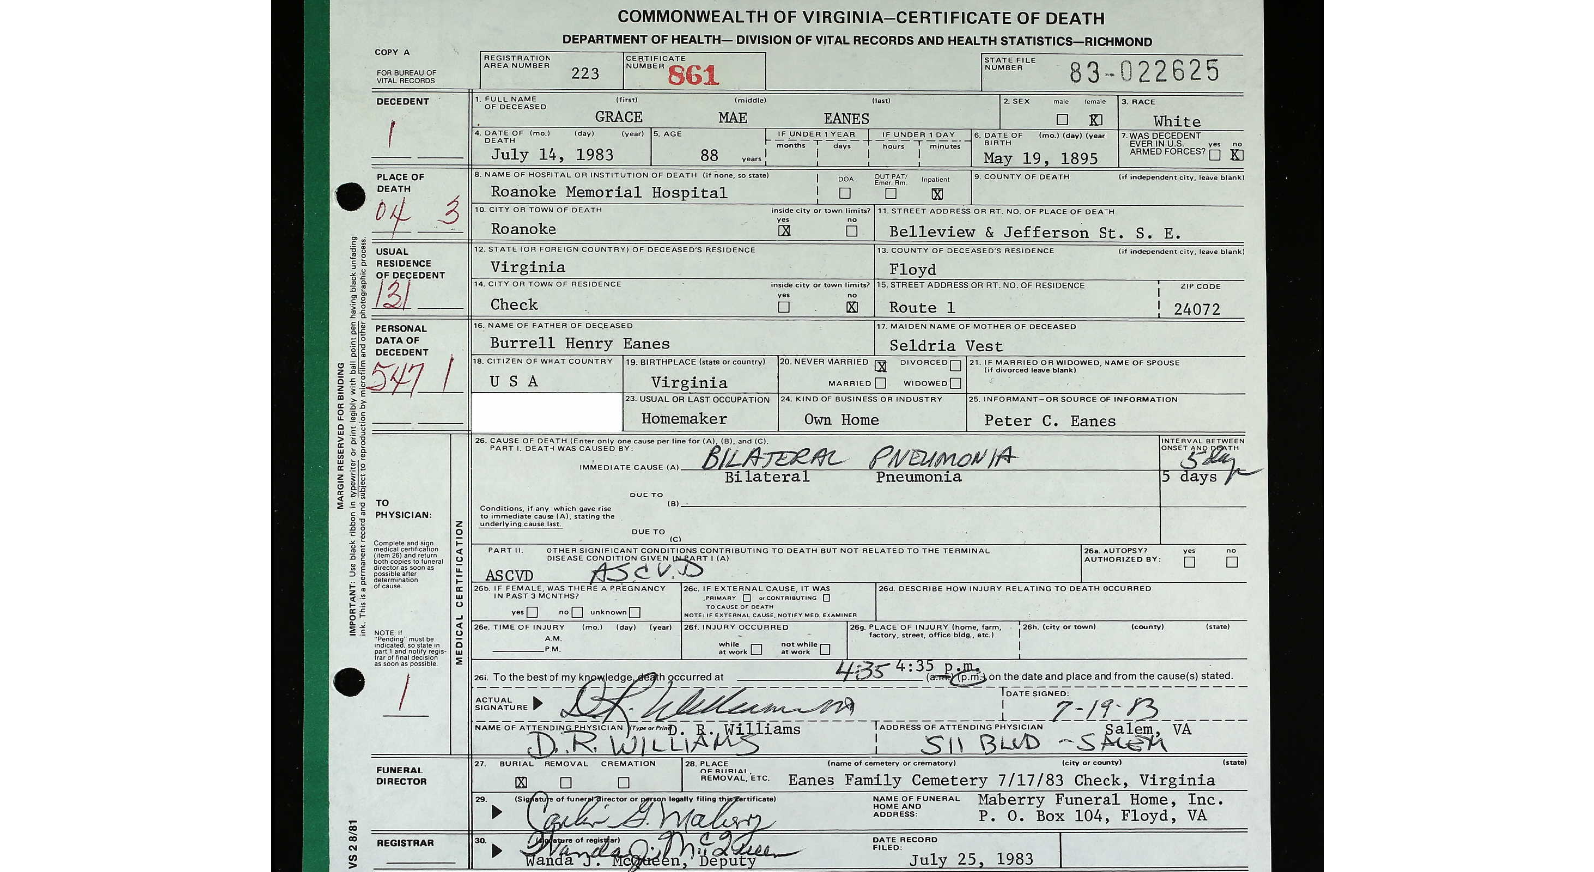 COMMONWEALTH OF VIRGINIA—CERTIFICATE OF DEATH
DEPARTMENT OF HEALTH— DIVISION OF VITAL RECORDS AND HEALTH STATISTICS—RICHMOND
COPY A
FOR BUREAU OF
VITAL RECORDS
REGISTRATION
AREA NUMBER 223
CERTIFICATE
NUMBER 861
STATE FILE
NUMBER 83-022625
DECEDENT
1
1. FULL NAME (first) (middle) (last)
OF DECEASED
GRACE MAE EANES
2. SEX male female
X
3. RACE
White
4. DATE OF (mo.) (day) (year)
DEATH
July 14, 1983
5. AGE
88 years
IF UNDER 1 YEAR
months days
IF UNDER 1 DAY
hours minutes
6. DATE OF (mo.) (day) (year
BIRTH
May 19, 1895
7. WAS DECEDENT
EVER IN U.S. yes no
ARMED FORCES? X
PLACE OF
DEATH
04 3
8. NAME OF HOSPITAL OR INSTITUTION OF DEATH (if none, so state)
Roanoke Memorial Hospital
DOA OUT PAT/ Emer. Rm. Inpatient
X
9. COUNTY OF DEATH (if independent city, leave blank)
10. CITY OR TOWN OF DEATH inside city or town limits?
yes no
Roanoke X
11. STREET ADDRESS OR RT. NO. OF PLACE OF DEATH
Belleview & Jefferson St. S. E.
USUAL
RESIDENCE
OF DECEDENT
131
12. STATE (OR FOREIGN COUNTRY) OF DECEASED'S RESIDENCE
Virginia
13. COUNTY OF DECEASED'S RESIDENCE (if independent city, leave blank)
Floyd
14. CITY OR TOWN OF RESIDENCE inside city or town limits?
yes no
Check X
15. STREET ADDRESS OR RT. NO. OF RESIDENCE ZIP CODE
Route 1 24072
PERSONAL
DATA OF
DECEDENT
547 1
16. NAME OF FATHER OF DECEASED
Burrell Henry Eanes
17. MAIDEN NAME OF MOTHER OF DECEASED
Seldria Vest
18. CITIZEN OF WHAT COUNTRY
U S A
19. BIRTHPLACE (state or country)
Virginia
20. NEVER MARRIED X DIVORCED
MARRIED WIDOWED
21. IF MARRIED OR WIDOWED, NAME OF SPOUSE
(if divorced leave blank)
23. USUAL OR LAST OCCUPATION
Homemaker
24. KIND OF BUSINESS OR INDUSTRY
Own Home
25. INFORMANT—OR SOURCE OF INFORMATION
Peter C. Eanes
MARGIN RESERVED FOR BINDING
IMPORTANT: Use black ribbon in typewriter or print legibly with ball point pen having black unfading
ink. This is a permanent record and subject to reproduction by microfilm and other photographic process.
VS 2 8/81
TO
PHYSICIAN:
Complete and sign
medical certification
(item 26) and return
both copies to funeral
director as soon as
possible after
determination
of cause.
NOTE: If
"Pending" must be
indicated, so state in
part 1 and notify regis-
trar of final decision
as soon as possible.
1
MEDICAL CERTIFICATION
26. CAUSE OF DEATH (Enter only one cause per line for (A), (B), and (C).
PART I. DEATH WAS CAUSED BY:
INTERVAL BETWEEN
ONSET AND DEATH
BILATERAL PNEUMONIA 5 day
IMMEDIATE CAUSE (A)
Bilateral Pneumonia 5 days
DUE TO
(B)
Conditions, if any which gave rise
to immediate cause (A), stating the
underlying cause last.
DUE TO
(C)
PART II. OTHER SIGNIFICANT CONDITIONS CONTRIBUTING TO DEATH BUT NOT RELATED TO THE TERMINAL
DISEASE CONDITION GIVEN IN PART I (A)
ASCVD ASCVD
26a. AUTOPSY? yes no
AUTHORIZED BY:
26b. IF FEMALE, WAS THERE A PREGNANCY
IN PAST 3 MONTHS?
yes no unknown
26c. IF EXTERNAL CAUSE, IT WAS
PRIMARY or CONTRIBUTING
TO CAUSE OF DEATH
NOTE: IF EXTERNAL CAUSE, NOTIFY MED. EXAMINER
26d. DESCRIBE HOW INJURY RELATING TO DEATH OCCURRED
26e. TIME OF INJURY (mo.) (day) (year)
A.M.
P.M.
26f. INJURY OCCURRED
while at work not while at work
26g. PLACE OF INJURY (home, farm,
factory, street, office bldg., etc.)
26h. (city or town) (county) (state)
26i. To the best of my knowledge, death occurred at 4:35 4:35 p.m. (a.m.) (p.m.) on the date and place and from the cause(s) stated.
ACTUAL
SIGNATURE
DATE SIGNED:
7-19-83
NAME OF ATTENDING PHYSICIAN (Type or Print) D. R. Williams
D. R. WILLIAMS
ADDRESS OF ATTENDING PHYSICIAN Salem, VA
511 BLVD - SALEM
FUNERAL
DIRECTOR
27. BURIAL REMOVAL CREMATION
X
28. PLACE
OF BURIAL,
REMOVAL, ETC.
(name of cemetery or crematory) (city or county) (state)
Eanes Family Cemetery 7/17/83 Check, Virginia
29. (Signature of funeral director or person legally filing this certificate)
NAME OF FUNERAL
HOME AND
ADDRESS:
Maberry Funeral Home, Inc.
P. O. Box 104, Floyd, VA
REGISTRAR
30. (Signature of registrar)
Wanda J. McQueen
Wanda J. McQueen, Deputy
DATE RECORD
FILED:
July 25, 1983